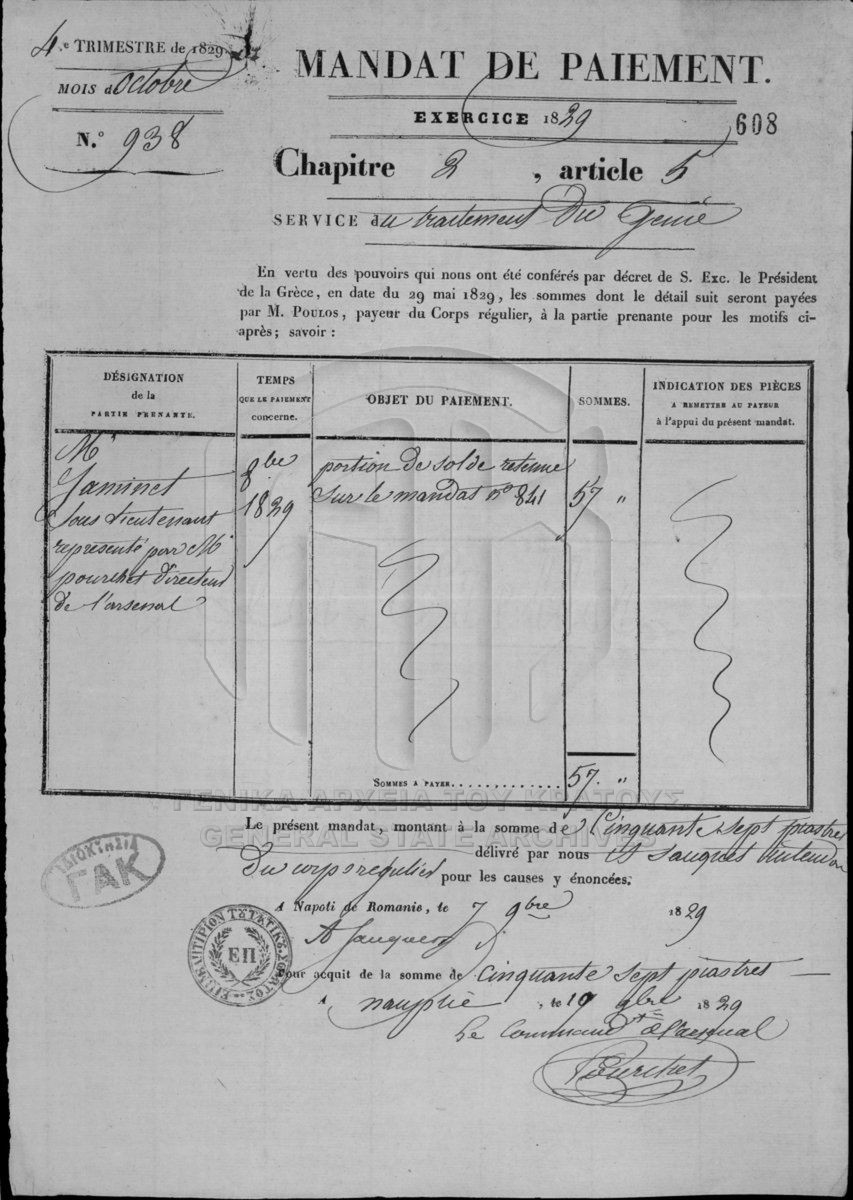 4.e TRIMESTRE de 1829
MOIS d'octobre
N.o 938
MANDAT DE PAIEMENT.
EXERCICE 1829
608
Chapitre 2, article 5
SERVICE du traitement Du Genie
En vertu des pouvoirs qui nous ont été conférés par décret de S. Exc. le Président
de la Grèce, en date du 29 mai 1829, les sommes dont le détail suit seront payées
par M. POULOS, payeur du Corps régulier, à la partie prenante pour les motifs ci-
après; savoir :
DÉSIGNATION
de la
PARTIE PRENANTE.
TEMPS
QUE LE PAIEMENT
concerne.
OBJET DU PAIEMENT.
SOMMES.
INDICATION DES PIÈCES
A REMETTRE AU PAYEUR
à l'appui du présent mandat.
Mr
Jaminet
sous Lieutenant
représenté par Mr
pourchet directeur
de l'arsenal
8bre
1829
portion de solde retenue
sur le mandat no 841
57 "
SOMMES A PAYER..............57. "
ΓΕΝΙΚΑ ΑΡΧΕΙΑ ΤΟΥ ΚΡΑΤΟΥΣ
GENERAL STATE ARCHIVES
Le présent mandat, montant à la somme de Cinquante sept piastres
délivré par nous
Du corps régulier pour les causes y énoncées.
A Napoli de Romanie, le 7 9bre 1829
ΙΔΙΟΚΤΗΣΙΑ
ΓΑΚ
ΕΠ
Pour acquit de la somme de cinquante sept piastres
A nauplie, le 19 9bre 1829
Le Command.t de l'arsenal
Pourchet